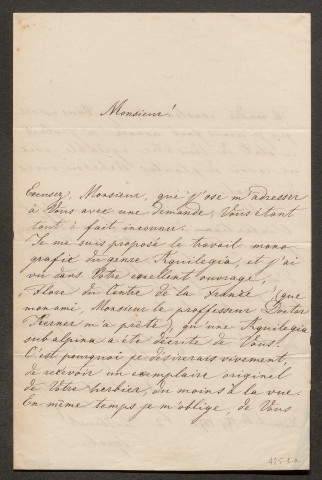 Monsieur!
Excusez, Monsieur, que j'ose m'adresser
à Vous avec une demande, Vous étant
tout à fait inconnu.
Je me suis proposé le travail mono-
grafix du genre Aquilegia, et j'ai
vu dans Votre excellent ouvrage,
"Flore du Centre de la France" (que
mon ami, Monsieur le proffisseur Doctor
Kerner m'a prêté), qu'une Aquilegia
subalpina a été décrite de Vous.
C'est pourquoi je désirerais vivement,
de recevoir un exemplaire originel
de Votre herbier, du moins à la vue.
En même temps je m'oblige, de Vous